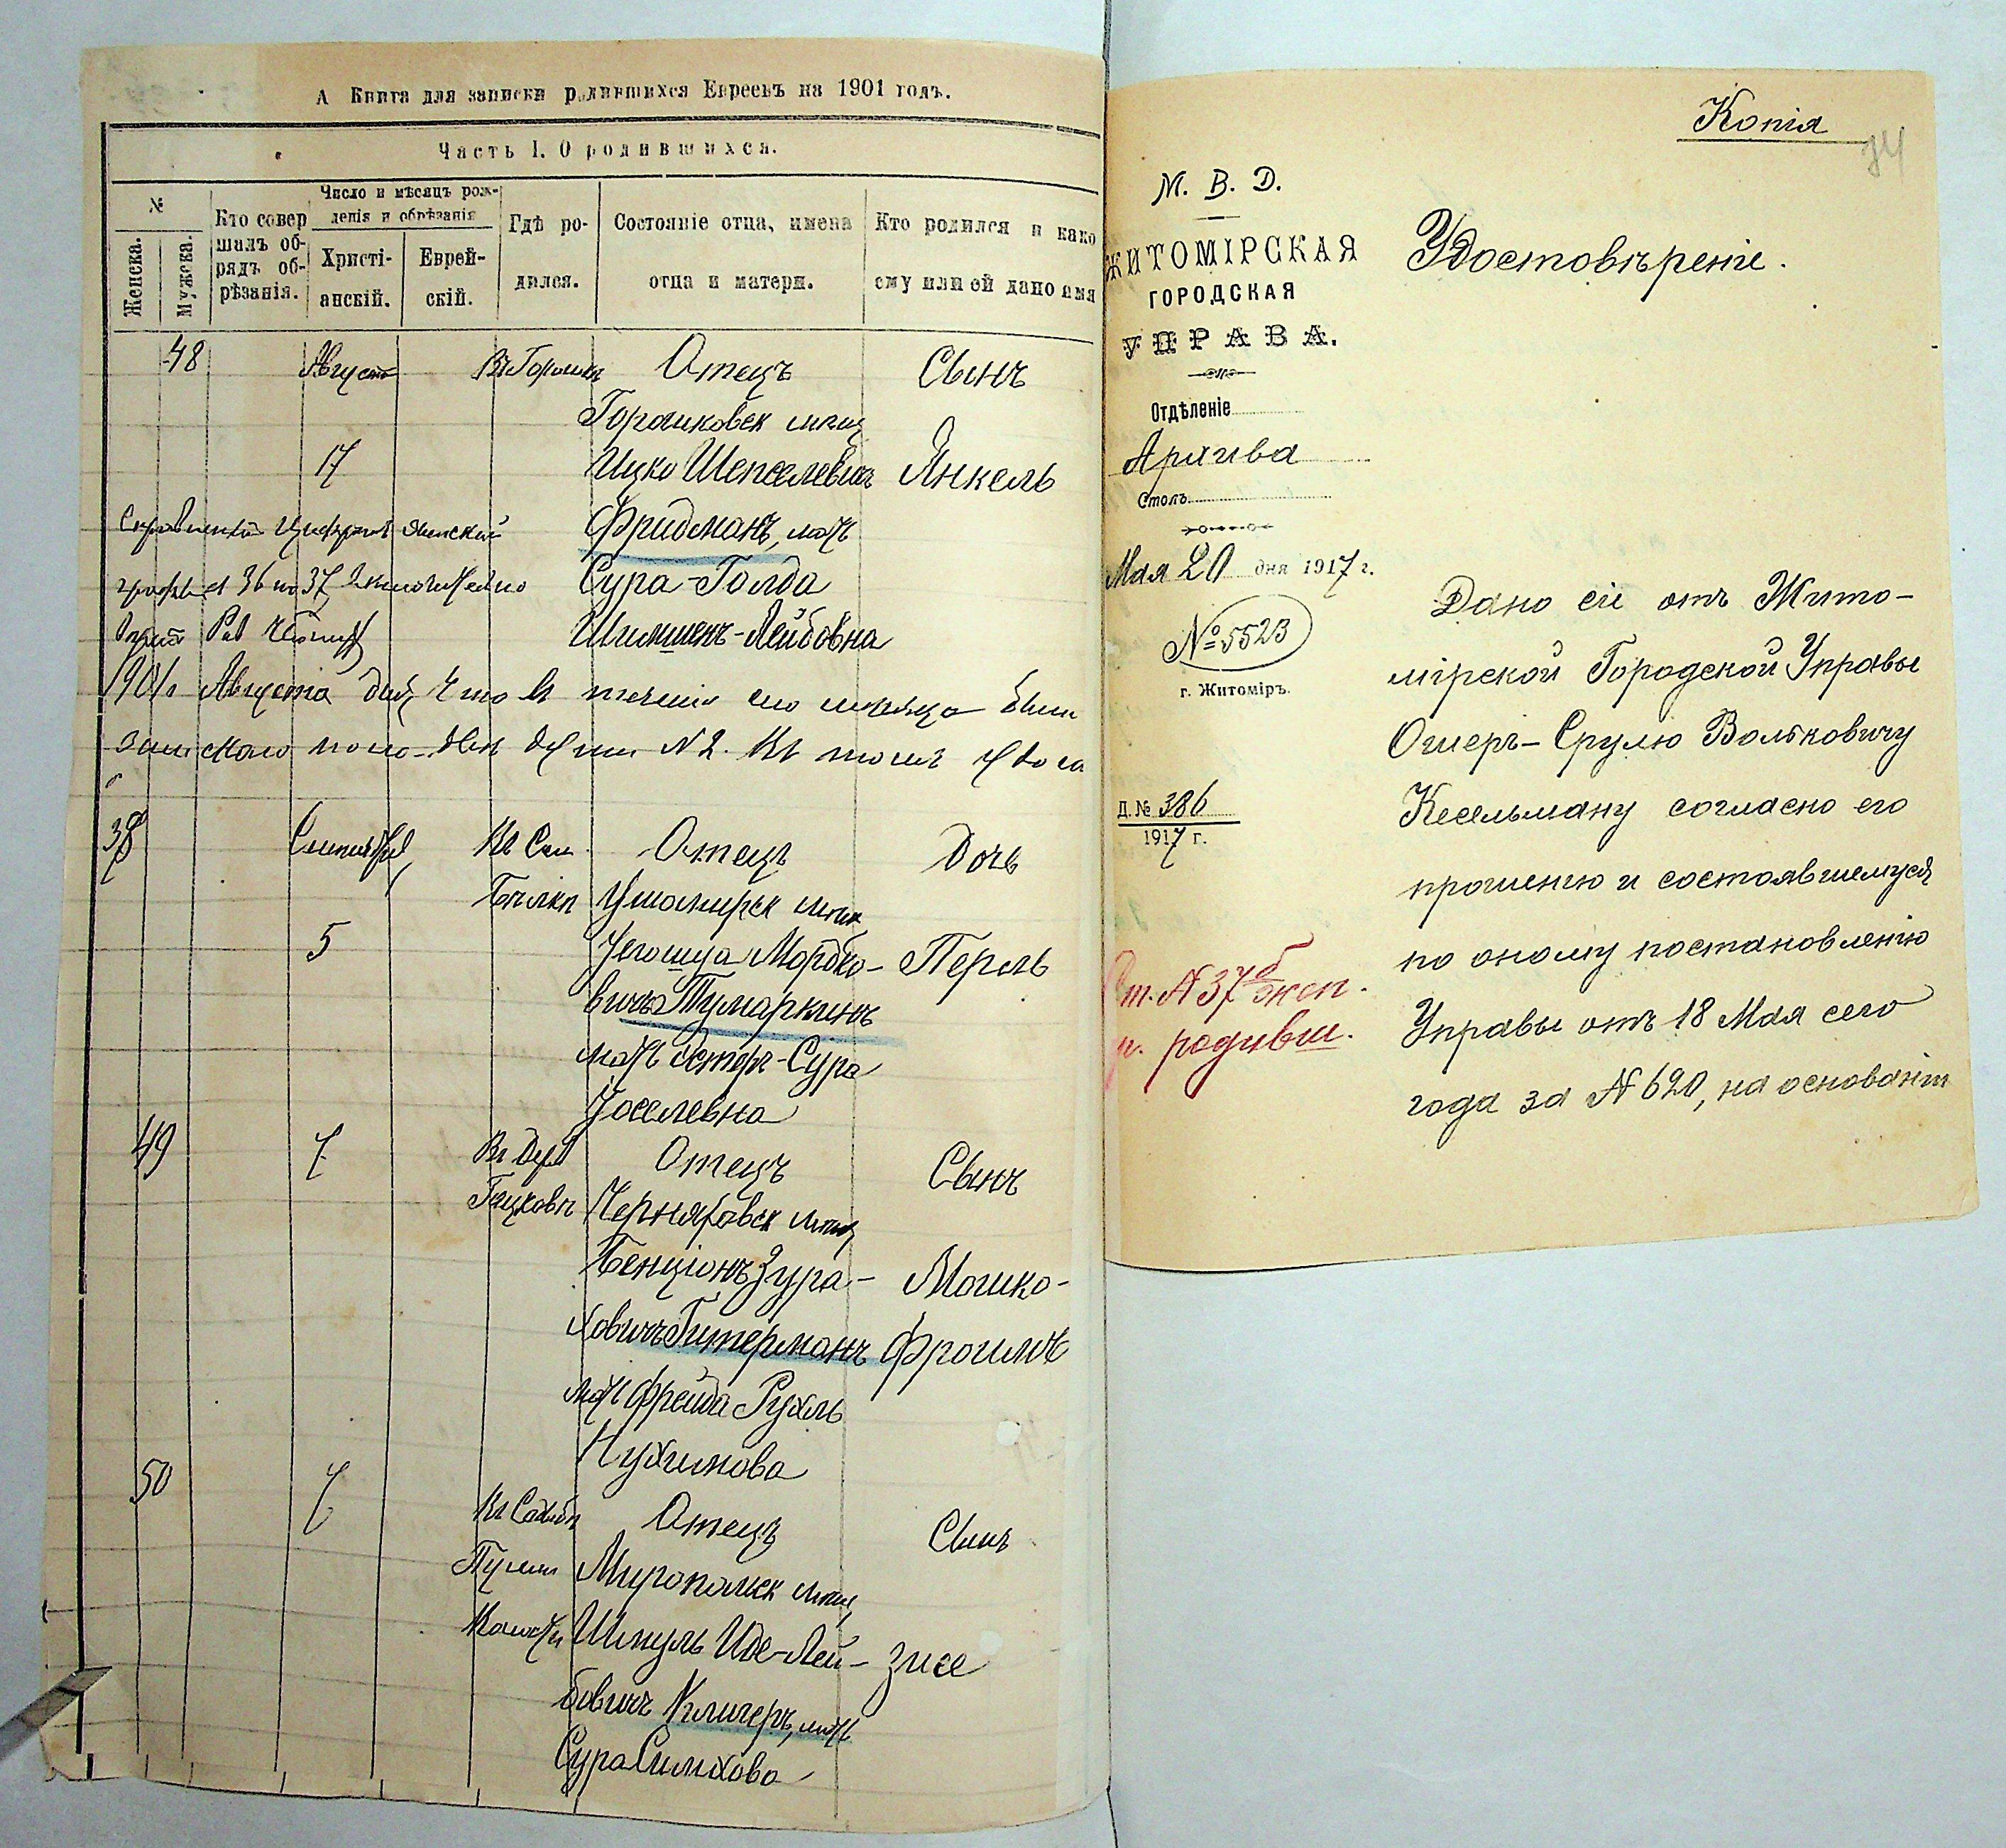 А Книга для записки родившихся Евреевъ на 1901 годъ.
Часть I. О родившихся.
№
Женска.
Мужска.
Кто совер
шалъ об-
рядъ об-
рѣзанія.
Число и мѣсяцъ рож-
денія и обрѣзанія
Христі-
анскій.
Еврей-
скій.
Гдѣ ро-
дился.
Состояніе отца, имена
отца и матери.
Кто родился и како
ему или ей дано имя
48
Августа
17
Отецъ
Горошковск мѣщ
Ицко Шепселевичъ
Фридманъ, мать
Сура-Голда
Лейбовна
Сынъ
Янкель
36 по 37 включительно
1901 г Августа что въ теченіи его мѣсяца были
№ 2. Въ томъ
38
Сентября
5
Въ Сел
Отецъ
Ушомирск мѣщ
Иегошуа Мордко-
вичъ Тумаркинъ
мать Эстеръ-Сура
Иоселевна
Дочь
Перль
49
7
Отецъ
Черняховск мѣщ
Бенціонъ Зура-
ховичъ Гитерманъ
мать Фрейда Рухль
Нухимова
Сынъ
Мошко-
Фроимъ
50
7
Отецъ
Миропольск мѣщ
Шмуль Иде-Лей-
бовичъ Клигеръ, мать
Сура Симхова
Сынъ
Зисе
Копія
74
М. В. Д.
ЖИТОМІРСКАЯ
ГОРОДСКАЯ
УПРАВА.
Отдѣленіе
Архива
Столъ
Мая 20 дня 1917 г.
№ 5523
г. Житоміръ.
Д. № 386
1917 г.
Ст. № 37 б жен.
р. родивш.
Удостовѣреніе.
Дано сіе отъ Жито-
мірской Городской Управы
Ошеръ-Срулю Вольковичу
Кесельману согласно его
прошенію и состоявшемуся
по оному постановленію
Управы отъ 18 Мая сего
года за № 620, на основаніи